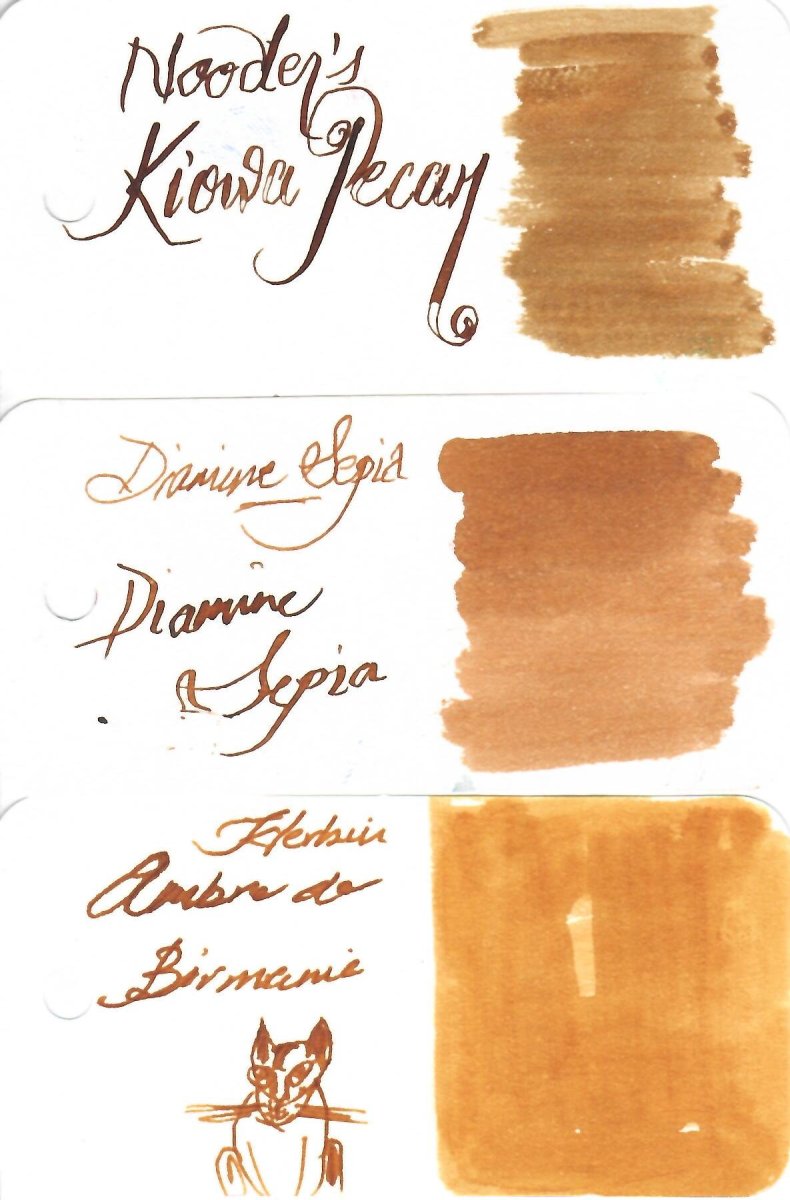 Nooder's
Kiowa Pecan
Diamine Sepia
Diamine
Sepia
Herbin
Ambre de
Birmanie